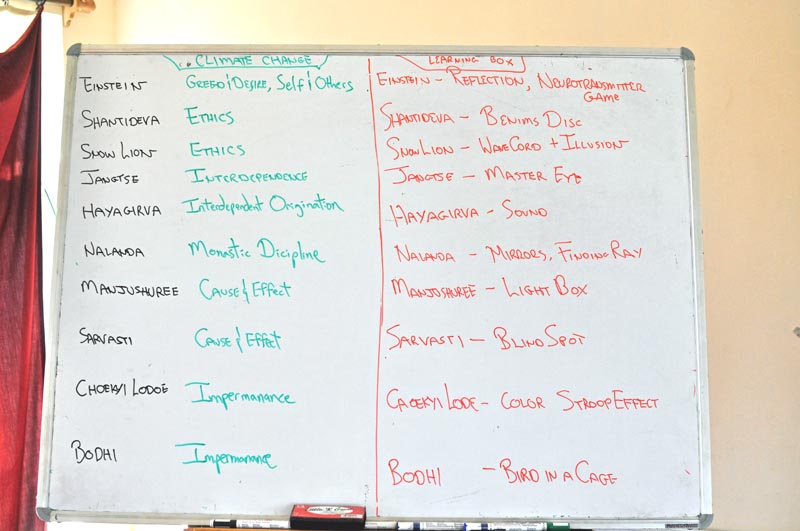 CLIMATE CHANGE
EINSTEIN GREED & DESIRE, SELF & OTHERS
SHANTIDEVA ETHICS
SNOW LION ETHICS
JANGTSE INTERDEPENDENCE
HAYAGIRVA Interdependent Origination
NALANDA Monastic Dicipline
MANJUSHUREE CAUSE & Effect
SARVASTI CAUSE & Effect
CHOEKYI LODOE Impermanance
BODHI Impermanance
LEARNING BOX
EINSTEIN - REFLECTION, NEUROTRANSMITTER
GAME
SHANTIDEVA - BENIMS DISC
SNOW LION - WAVE CORD + ILLUSION
JANGTSE - MASTER EYE
HAYAGIRVA - SOUND
NALANDA - MIRRORS, FINDING RAY
MANJUSHUREE - LIGHT BOX
SARVASTI - BLIND SPOT
CHOEKYI LODE - COLOR STROOP EFFECT
BODHI - BIRD IN A CAGE